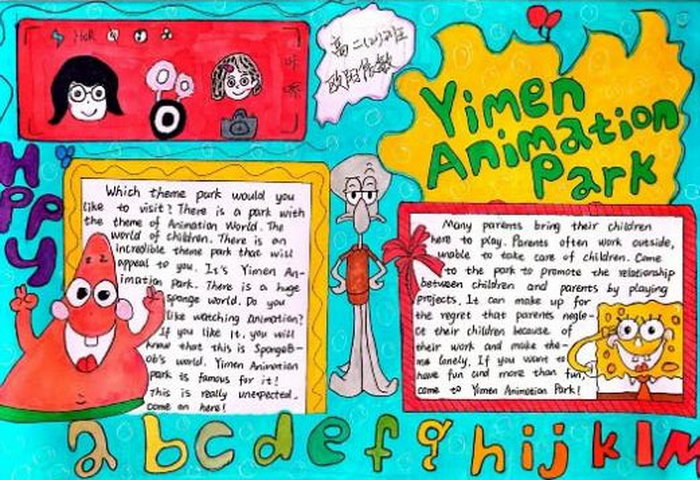 高二(2)班
Yimen
Animation
Park
Which theme park would you
like to visit? There is a park with
the theme of Animation World. The
world of children. There is an
incredible theme park that will
appeal to you. It's Yimen An-
imation Park. There is a huge
sponge world. Do you
like watching animation?
If you like it, you will
know that this is SpongeB-
ob's world. Yimen Animation
park is famous for it!
This is really unexpected.
come on here!
Many parents bring their children
here to play. Parents often work outside,
unable to take care of children. Come
to the park to promote the relationship
between children and parents by playing
projects. It can make up for
the regret that parents negle-
ce their children because of
their work and make the-
me lonely. If you want to
have fun and more than fun,
come to Yimen Animation Park!
H
PP
y
a b c d e f g h i j k l m